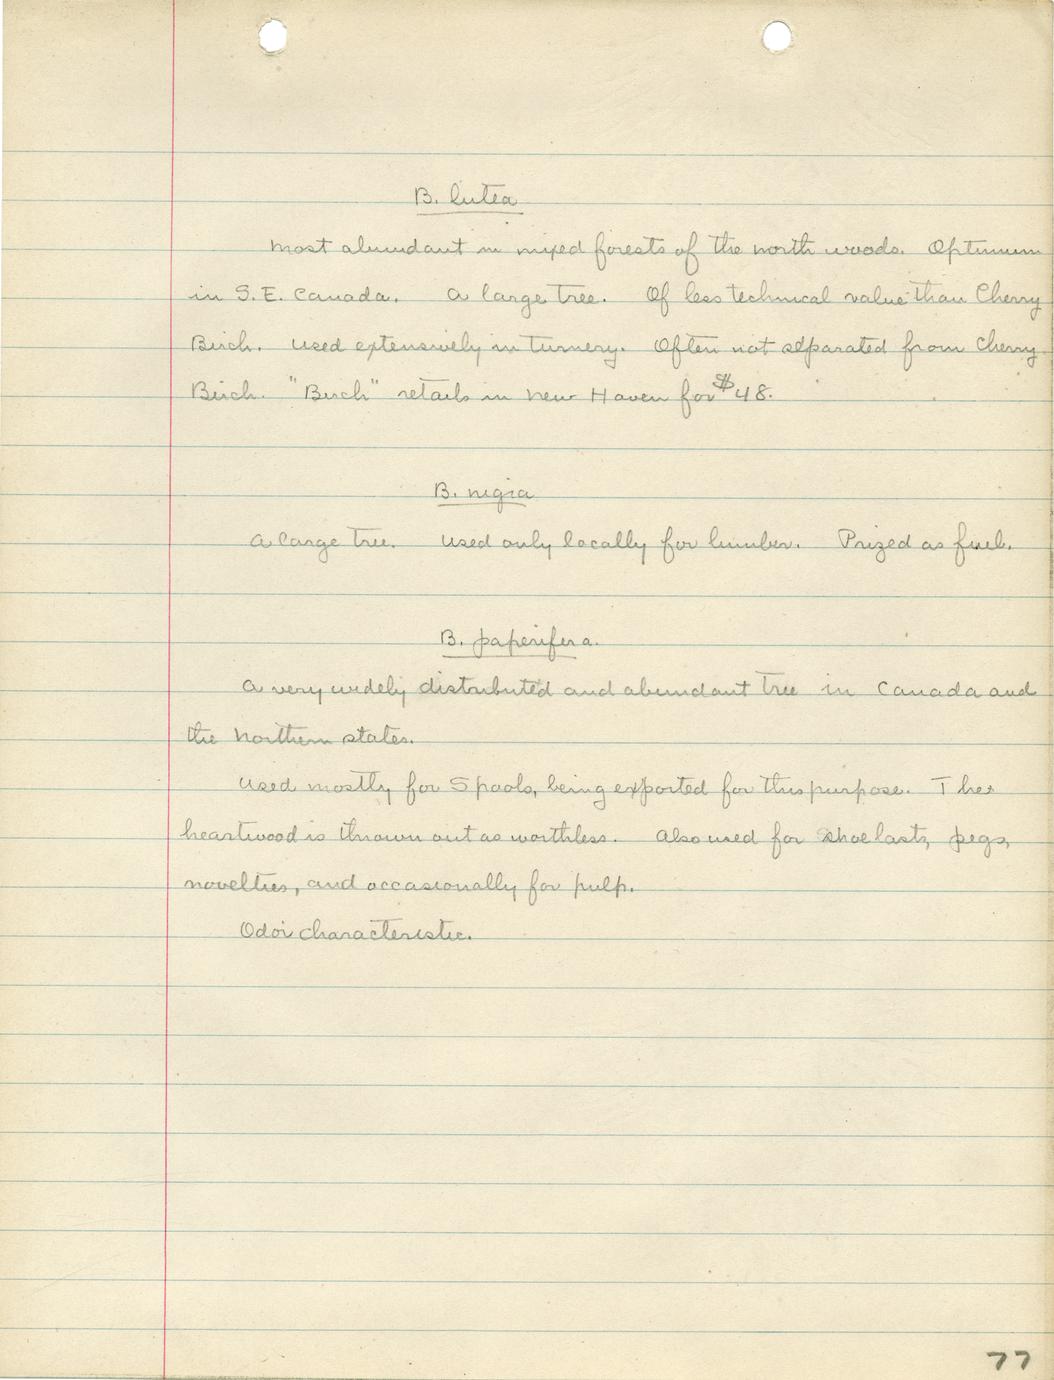 B. lutea
Most abundant in mixed forests of the north woods. Optimum
in S.E. Canada. A large tree. Of less technical value than Cherry
Birch. Used extensively in turnery. Often not separated from Cherry
Birch. "Birch" retails in New Haven for $48.
B. nigra
A large tree. Used only locally for lumber. Prized as fuel.
B. paperifera.
A very widely distributed and abundant tree in Canada and
the Northern states.
Used mostly for Spools, being exported for this purpose. The
heartwood is thrown out as worthless. Also used for shoe lasts, pegs,
novelties, and occasionally for pulp.
Odor characteristic.
77